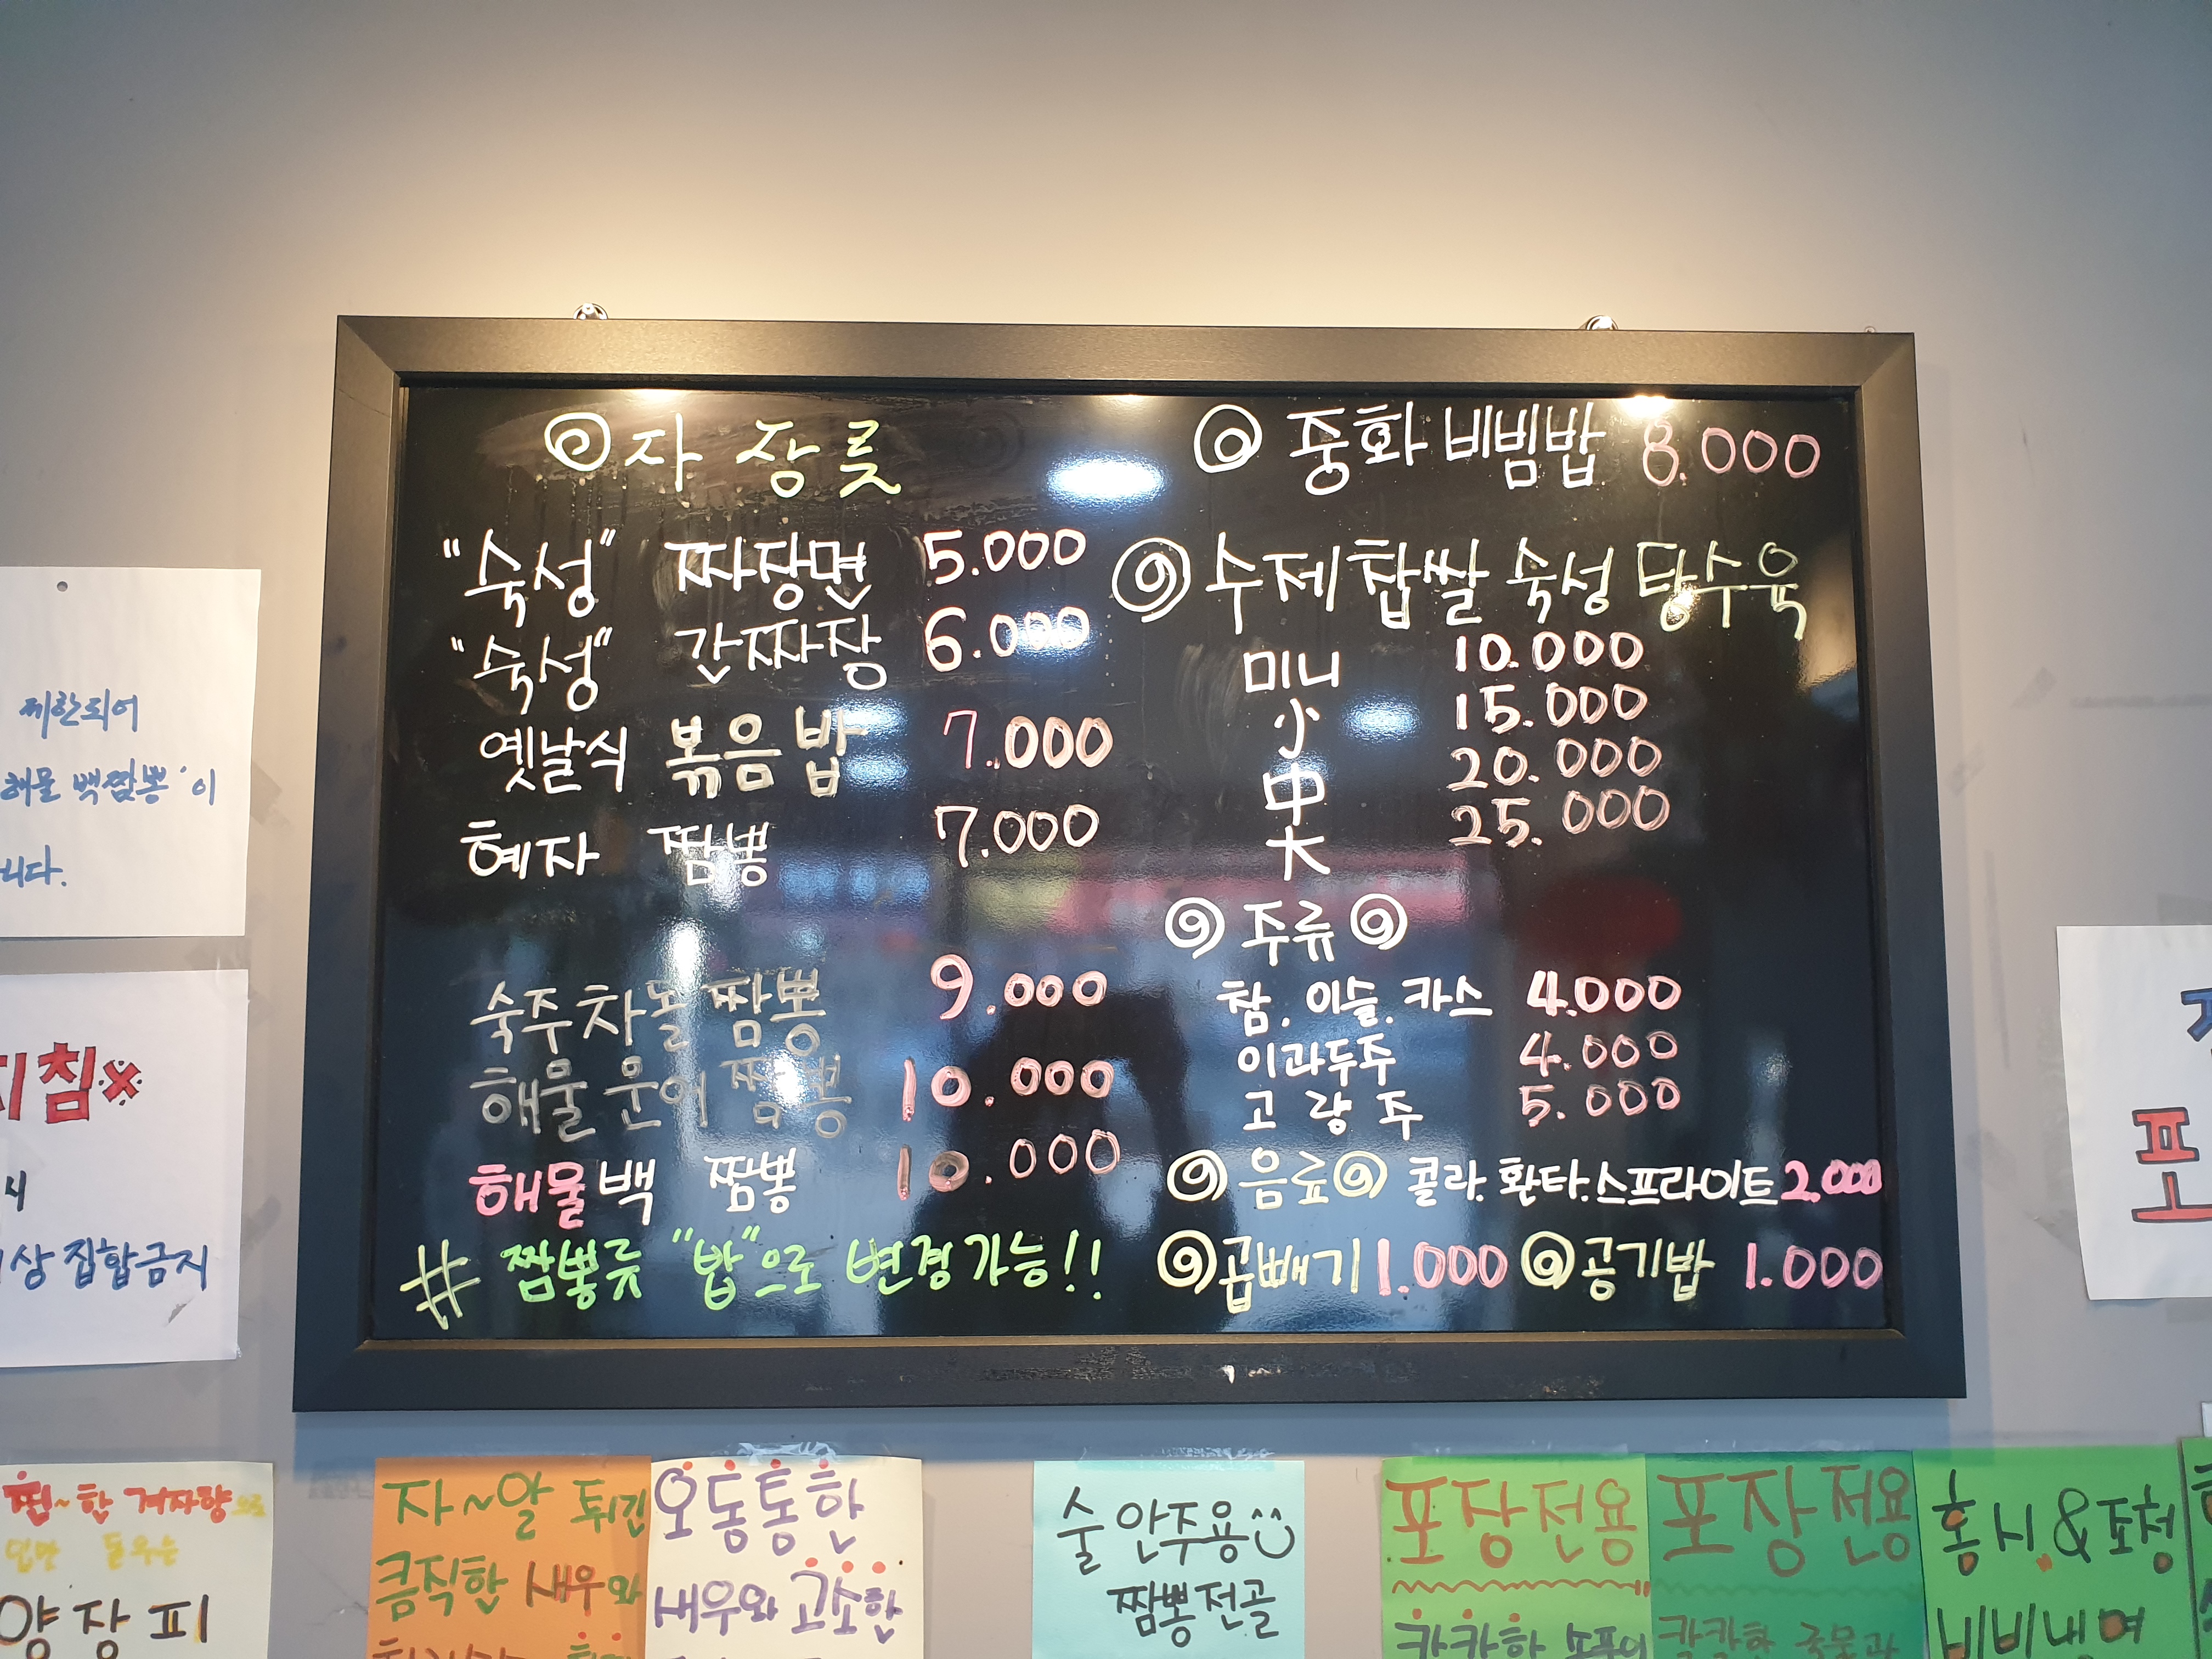 자장류
"숙성" 짜장면 5.000
"숙성" 간짜장 6.000
옛날식 볶음밥 7.000
혜자 짬뽕 7.000
숙주차돌짬뽕 9.000
해물문어짬뽕 10.000
해물백 짬뽕 10.000
# 짬뽕류 "밥"으로 변경가능!!
중화비빔밥 8.000
수제찹쌀 숙성 탕수육
미니 10.000
小 15.000
中 20.000
大 25.000
주류
참.이슬.카스 4.000
이과두주 4.000
고량주 5.000
음료 콜라.환타.스프라이트 2.000
곱빼기 1.000 공기밥 1.000
제한되어
해물 백짬뽕'이
니다.
지침※
시
상 집합금지
포
찜~한 겨자향으로
양장피
자~알 튀긴
큼직한 새우와
오동통한
새우와 고소한
술안주용
짬뽕전골
포장전용
포장전용
홍시&조청